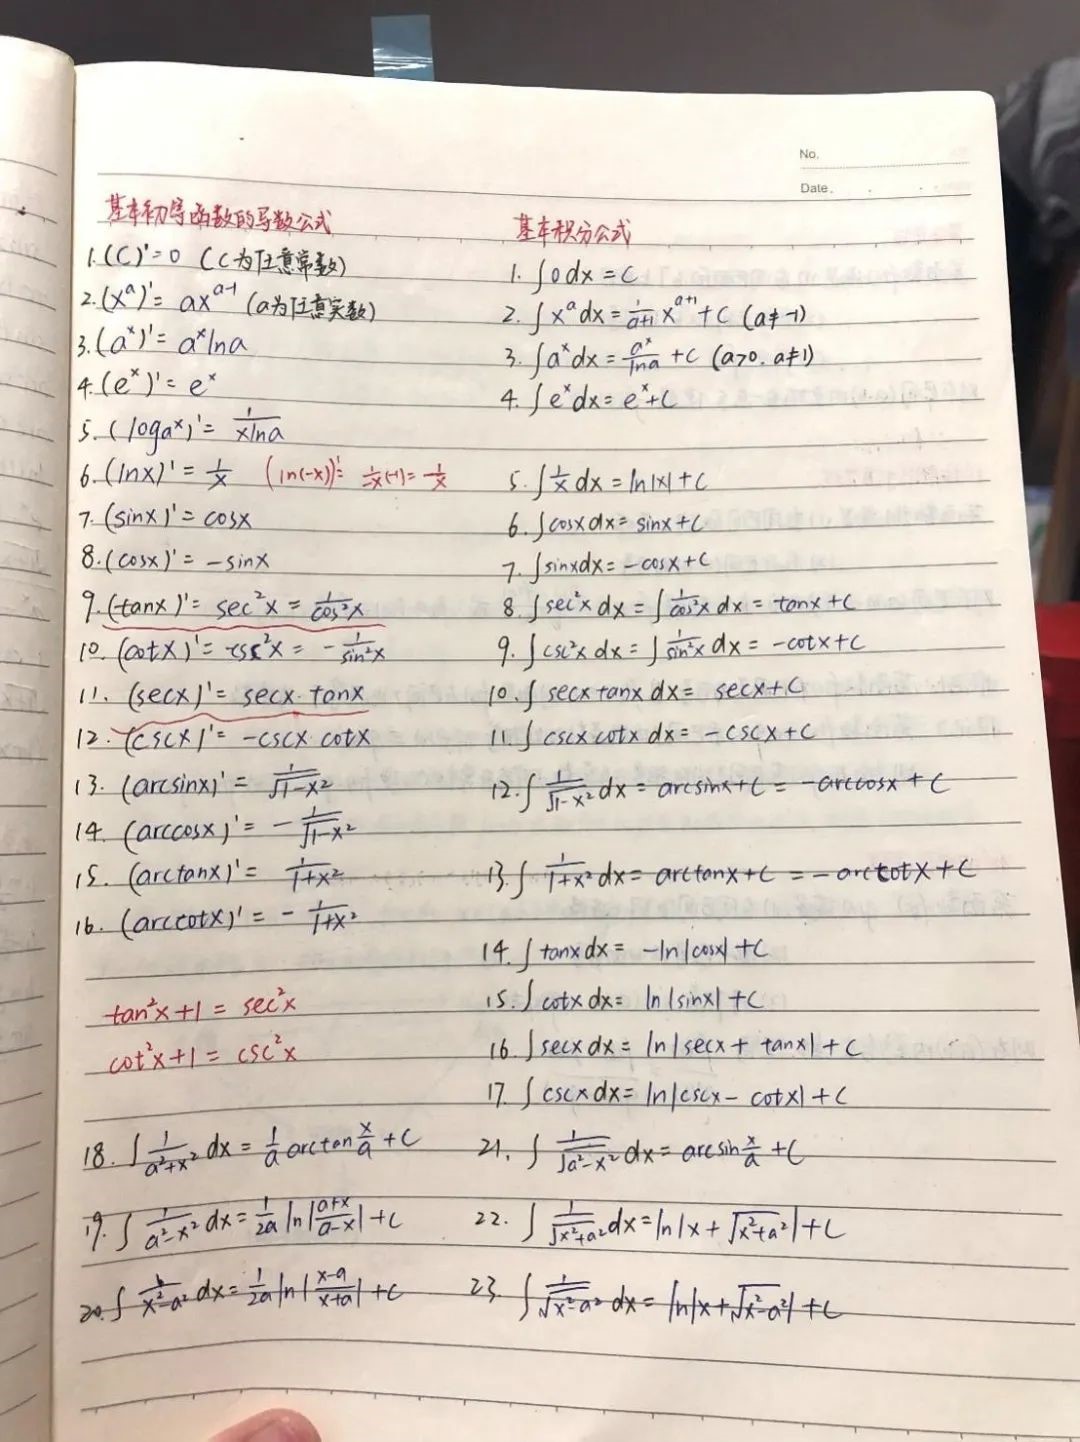 No.
Date.
基本初等函数的导数公式
1.(C)'=0 (C为任意常数)
2.(x^a)'= ax^(a-1) (a为任意实数)
3.(a^x)'= a^x lna
4.(e^x)'= e^x
5.(loga^x)'= 1/(xlna)
6.(lnx)'= 1/x (ln(-x))'= 1/-x (-1)= 1/x
7.(sinx)'= cosx
8.(cosx)'= -sinx
9.(tanx)'= sec²x = 1/cos²x
10.(cotx)'= -csc²x = - 1/sin²x
11.(secx)'= secx·tanx
12.(cscx)'= -cscx·cotx
13.(arcsinx)'= 1/√(1-x²)
14.(arccosx)'= - 1/√(1-x²)
15.(arctanx)'= 1/(1+x²)
16.(arccotx)'= - 1/(1+x²)
tan²x+1 = sec²x
cot²x+1 = csc²x
基本积分公式
1. ∫0dx = C
2. ∫x^a dx = 1/(a+1) x^(a+1) + C (a≠-1)
3. ∫a^x dx = a^x/lna + C (a>0, a≠1)
4. ∫e^x dx = e^x + C
5. ∫1/x dx = ln|x| + C
6. ∫cosx dx = sinx + C
7. ∫sinx dx = -cosx + C
8. ∫sec²x dx = ∫1/cos²x dx = tanx + C
9. ∫csc²x dx = ∫1/sin²x dx = -cotx + C
10. ∫secx tanx dx = secx + C
11. ∫cscx cotx dx = -cscx + C
12. ∫1/√(1-x²) dx = arcsinx + C = -arccosx + C
13. ∫1/(1+x²) dx = arctanx + C = -arccotx + C
14. ∫tanx dx = -ln|cosx| + C
15. ∫cotx dx = ln|sinx| + C
16. ∫secx dx = ln|secx + tanx| + C
17. ∫cscx dx = ln|cscx - cotx| + C
18. ∫1/(a²+x²) dx = 1/a arctan x/a + C
19. ∫1/(a²-x²) dx = 1/2a ln|(a+x)/(a-x)| + C
20. ∫1/(x²-a²) dx = 1/2a ln|(x-a)/(x+a)| + C
21. ∫1/√(a²-x²) dx = arcsin x/a + C
22. ∫1/√(x²+a²) dx = ln|x + √(x²+a²)| + C
23. ∫1/√(x²-a²) dx = ln|x + √(x²-a²)| + C